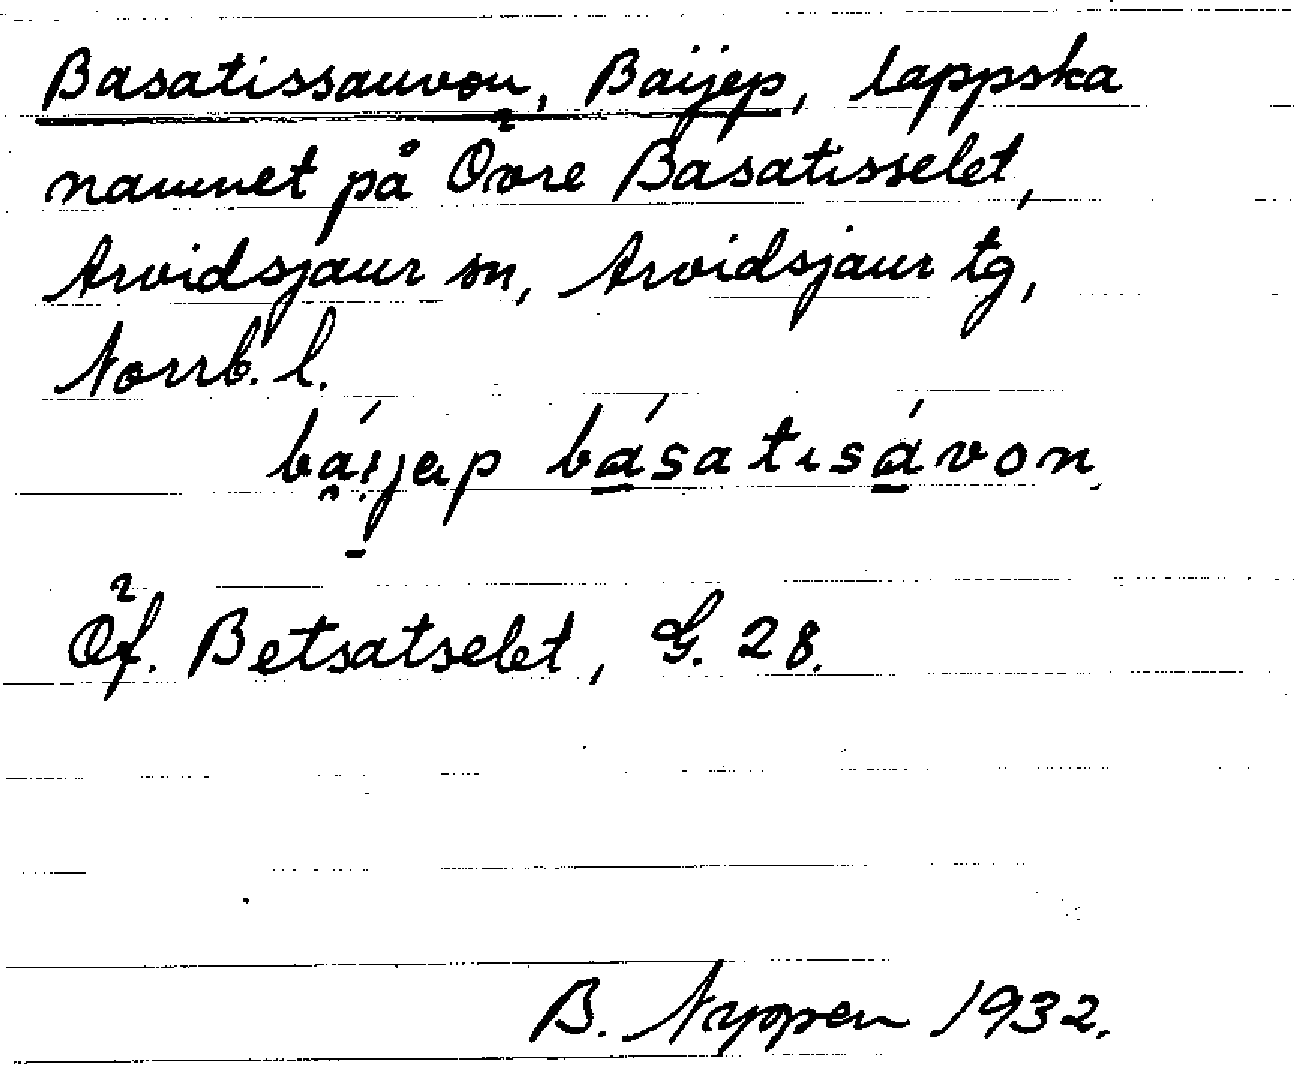 Basatissauvon, Baijep, lappska
namnet på Övre Basatisselet,
Arvidsjaur sn, Arvidsjaur tg,
Norrb. l.
bái̯jep básatısávon.
Öf. Betsatselet, G. 28.
B. Nyppen 1932.